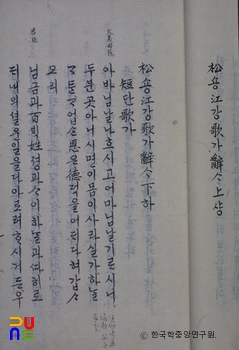 松숑江강歌가辭ᄉᆞ上샹
松숑江강歌가辭ᄉᆞ下하
短단歌가
아바님날나ᄒᆞ시고어마님날기ᄅᆞ시니
두분곳아니시면이몸이사라실가하ᄂᆞᆯ
ᄀᆞᄐᆞᆫᄀᆞ업ᄉᆞᆫ恩은德덕을어ᄃᆡ다혀갑ᄉᆞ
오리
님금과百ᄇᆡᆨ姓셩과ᄉᆞ이하ᄂᆞᆯ과ᄯᅡ히로
ᄃᆡ내의셜운일을다아로려ᄒᆞ시거든우
© 한국학중앙연구원